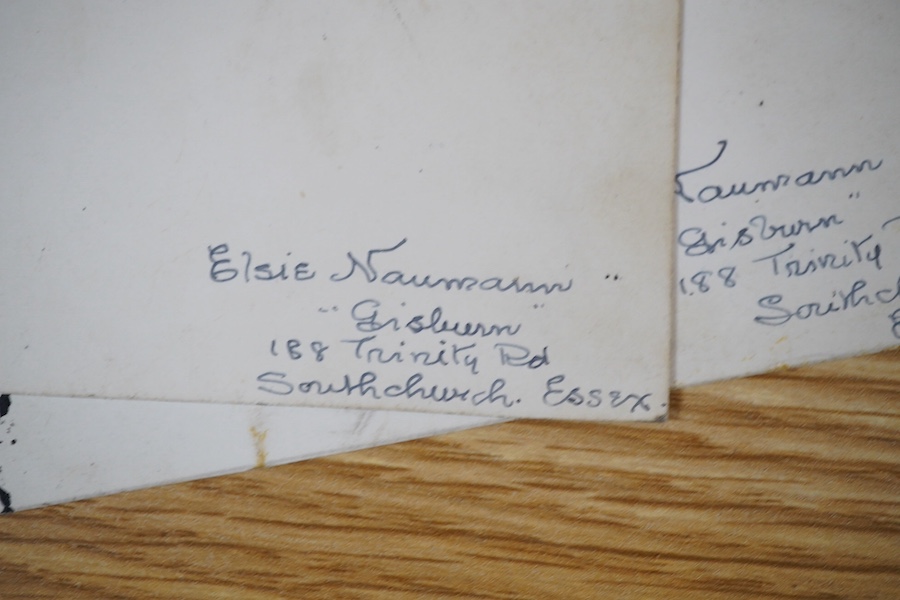 Elsie Naumann "
"Gisburn"
188 Trinity Rd
Southchurch. Essex.
Naumann
Gisburn"
188 Trinity
Southc